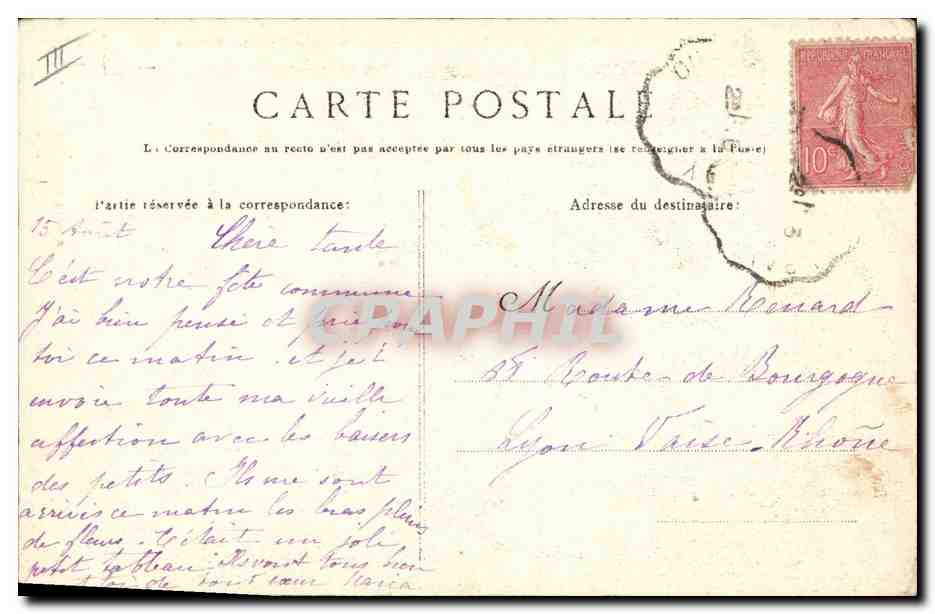 III
CARTE POSTALE
La Correspondance au recto n'est pas acceptée par tous les pays étrangers (se renseigner à la Poste)
REPUBLIQUE FRANÇAISE
10c
Partie réservée à la correspondance:
15 Août Chère tante
C'est notre fête commune
J'ai bien pensé et prié pour
toi ce matin et je t'
envoie toute ma vieille
affection avec les baisers
des petits. Ils me sont
arrivés ce matin les bras pleins
de fleurs. C'était un joli
petit tableau. Ils vont tous bien
de tout cœur Maria
Adresse du destinataire:
Madame Renard
Route de Bourgogne
Lyon Vaise Rhône
CPAPHIL